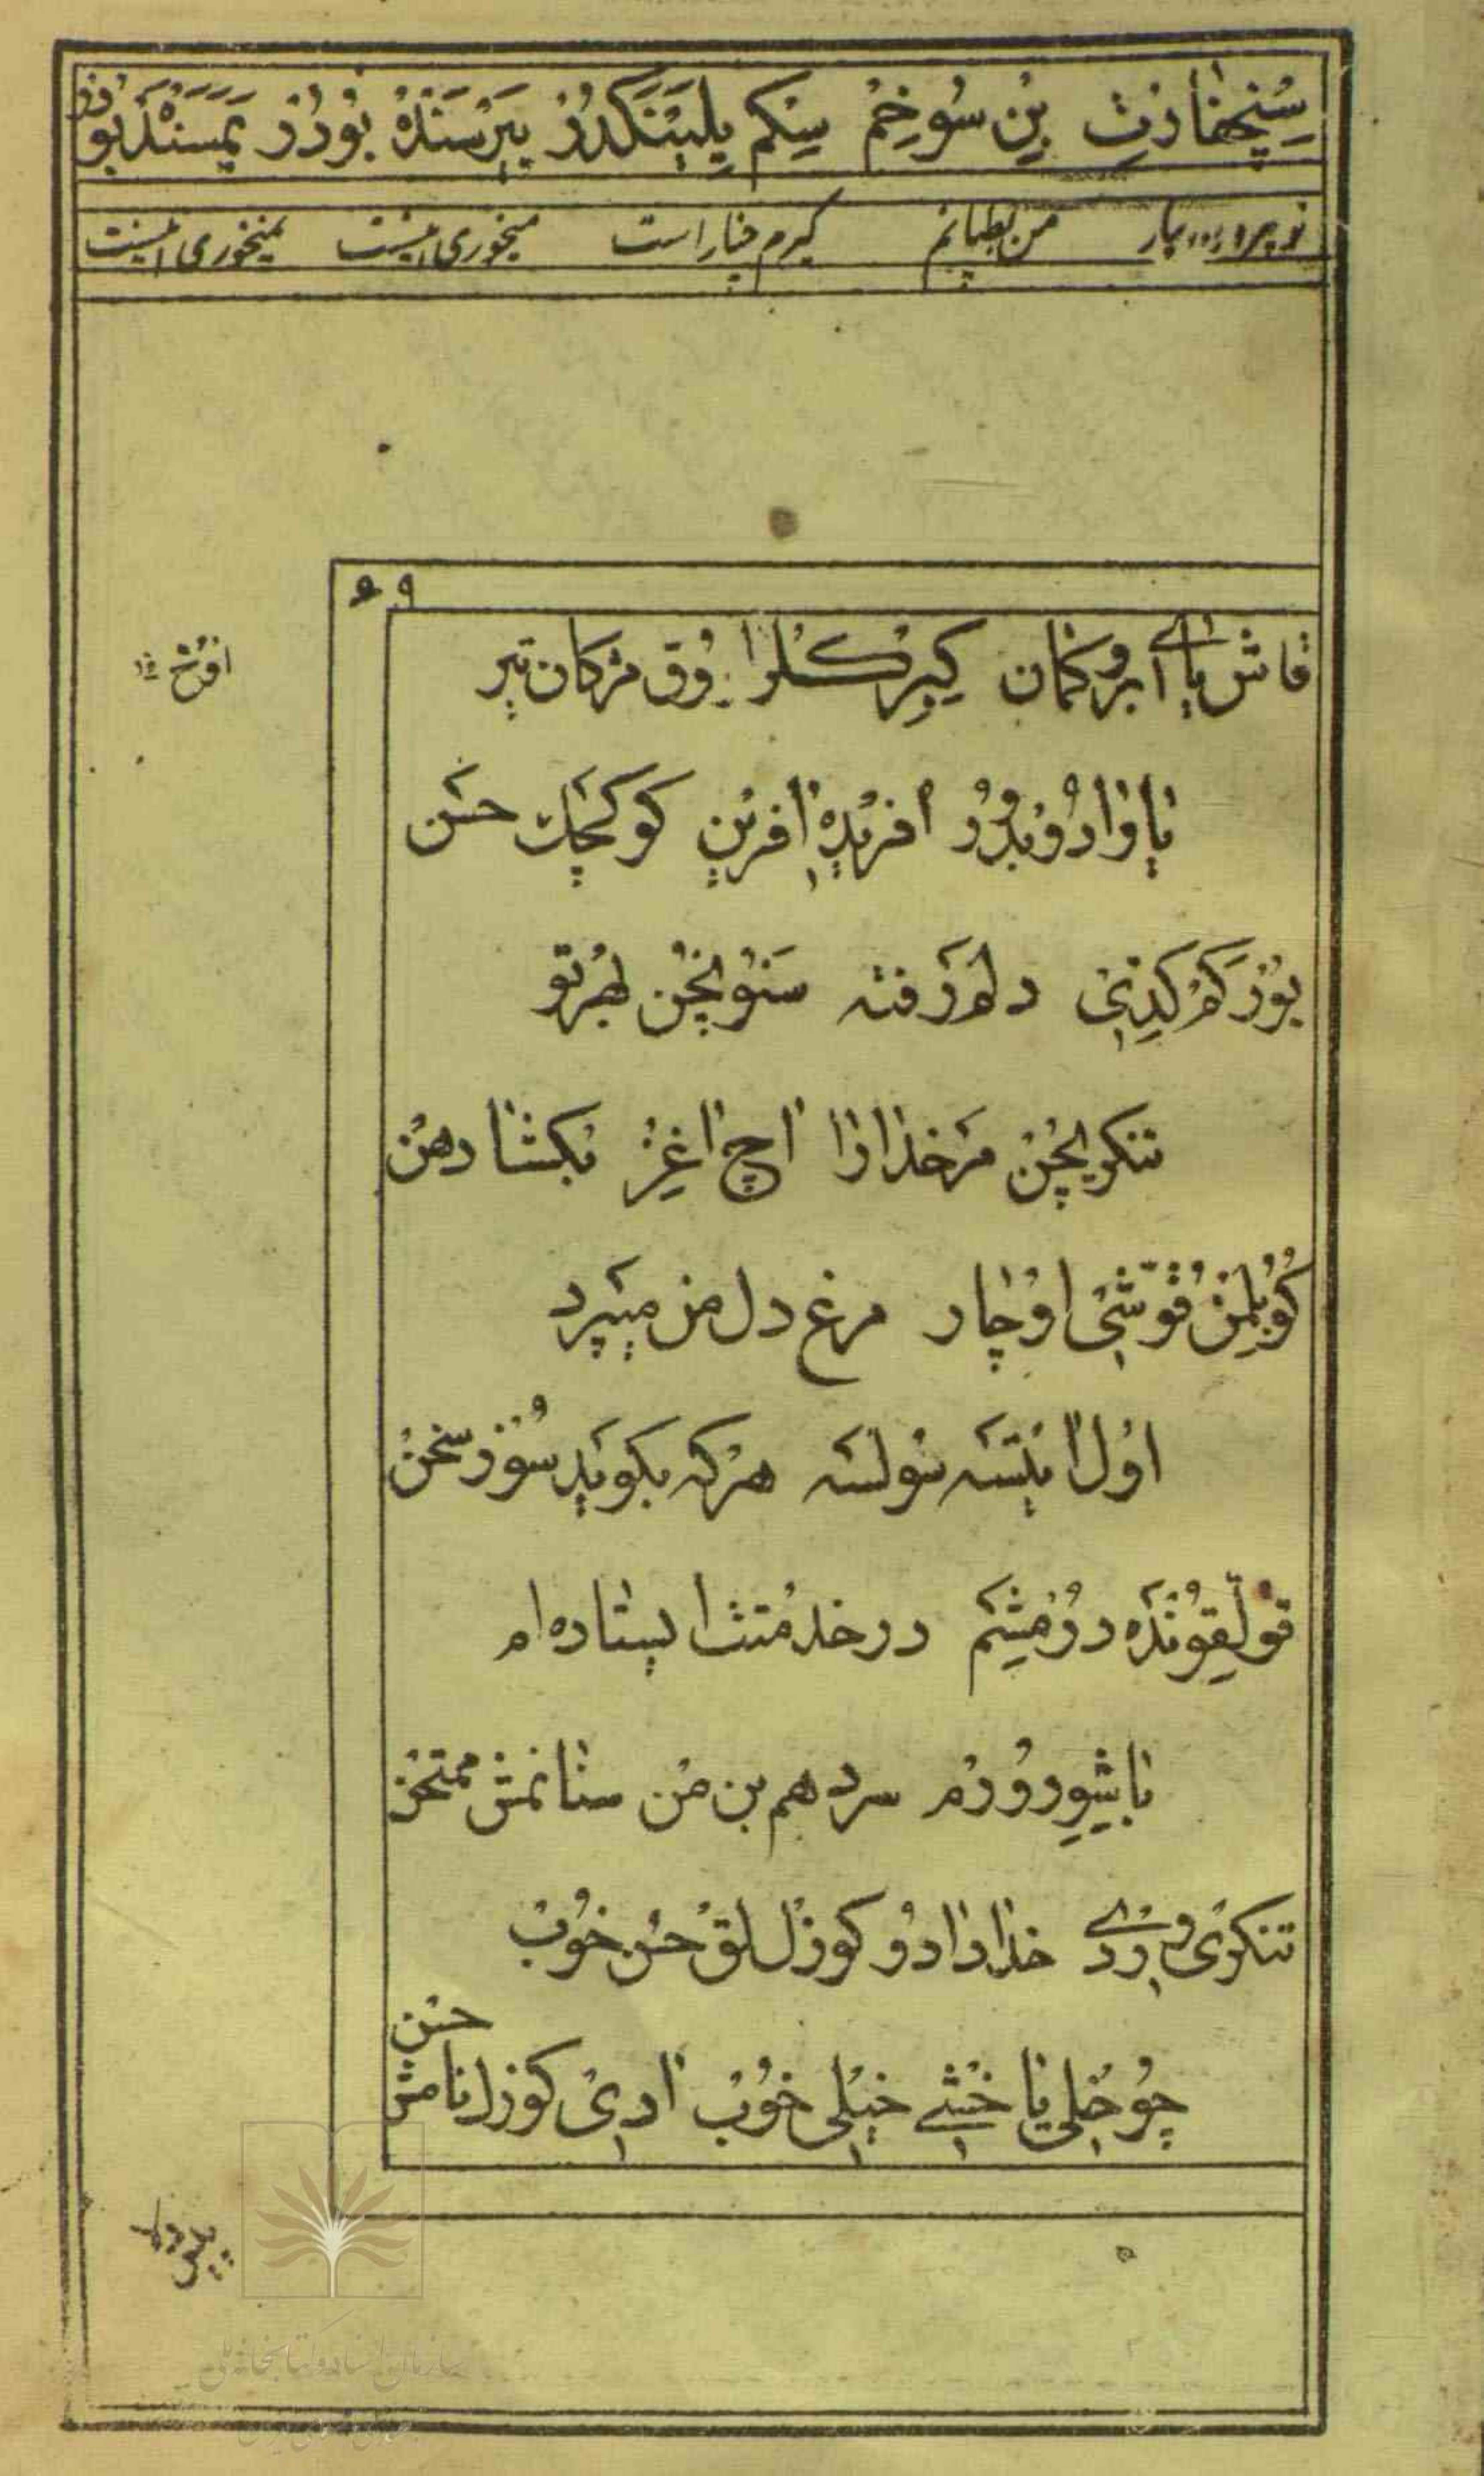 بین سوخم سنکم یلپنکدرر یبرسنده بودر یمسنده بودر
من بطپانم کیرم چنار است میخوری اینست نمیخوری اینست
۶۹
قاش یای ابرو کمان کیپرکلر اوق مژکان تیر
یاوادور بدور افریده افرین کوکچک حسن
بوزکم کدنی دلم رفته سنوبچن بهر تو
تنکربچن مر خدا را اچ اغز بکشا دهن
کوبلمن قوشی اوچار مرغ دل من میپرد
اول ایسته سولسه هرکه بکوید سوز سخن
قولقونده دورمشم در خدمتت ایستاده ام
باشویرورم سر دهم بن من سنانمش ممتحن
تنکری ویردی خدا دادو کوزللق حسن خوب
چوخلی یاخشی خیلی خوب ادی کوزل نامش حسن